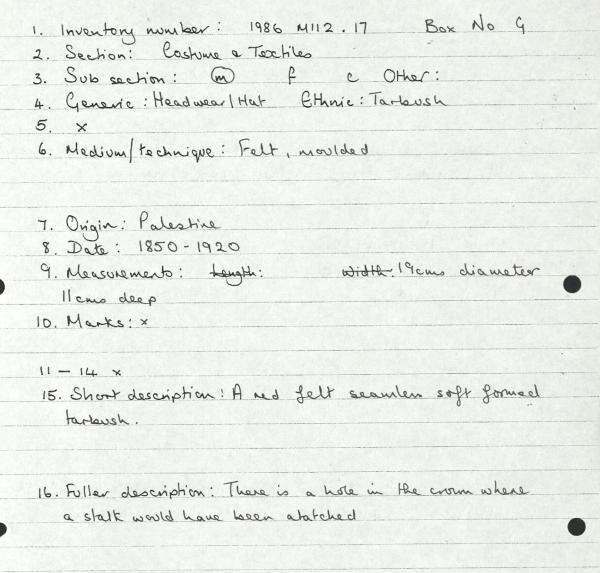 1. Inventory number: 1986 M112.17 Box No 9
2. Section: Costume & Textiles
3. Sub section: m f c Other:
4. Generic: Headwear/Hat Ethnic: Tarbush
5. x
6. Medium/technique: Felt, moulded
7. Origin: Palestine
8. Date: 1850-1920
9. Measurements: Length: width: 19cms diameter
11cms deep
10. Marks: x
11 - 14 x
15. Short description: A red felt seamless soft formed
tarbush.
16. Fuller description: There is a hole in the crown where
a stalk would have been atatched